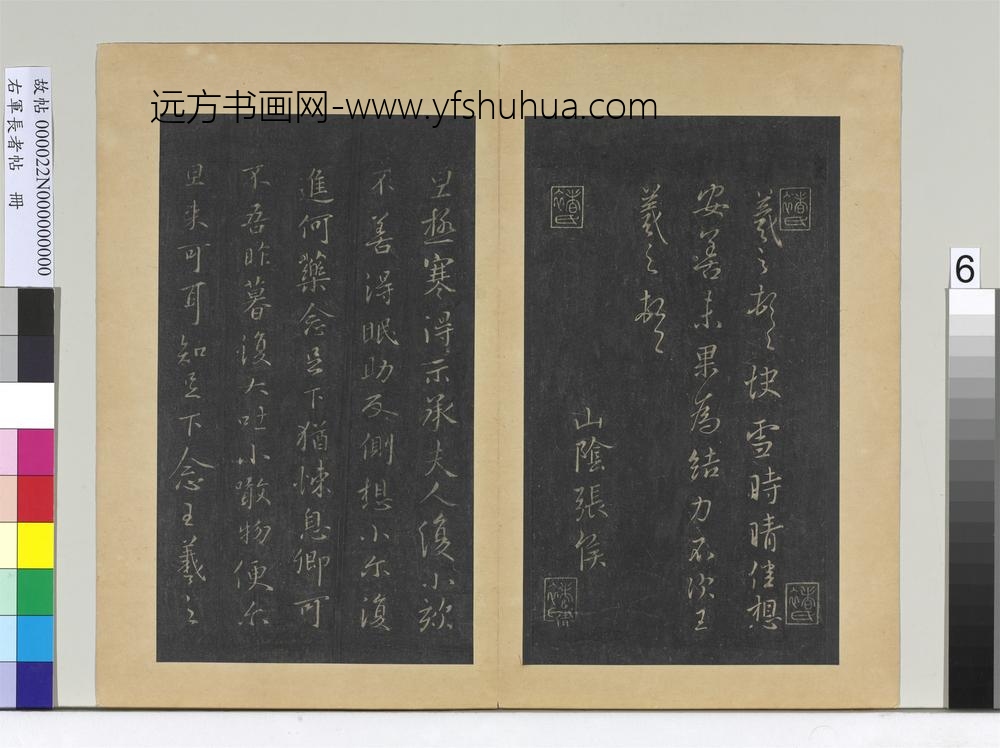 远方书画网-www.yfshuhua.com
故帖 000022N000000000
右軍長者帖 冊
6
羲之頓首快雪時晴佳想
安善未果為結力不次王
羲之頓首
山陰張侯
旦極寒得示承夫人復小欬
不善得眠助反側想小尔復
進何藥念足下猶悚息卿可
不吾昨暮復大吐小噉物便尔
旦来可耳知足下念王羲之